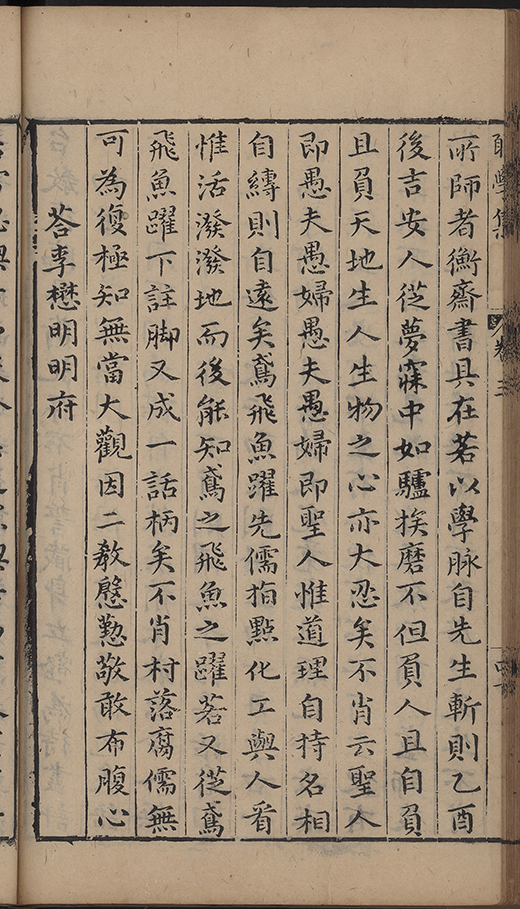 所師者衡齋書具在若以學脉自先生斬則乙酉
後吉安人從夢寐中如驢挨磨不但負人且自負
且負天地生人生物之心亦大忍矣不肖云聖人
即愚夫愚婦愚夫愚婦即聖人惟道理自持名相
自縳則自遠矣鳶飛魚躍先儒指點化工與人看
惟活潑潑地而後能知鳶之飛魚之躍若又從鳶
飛魚躍下註脚又成一話柄矣不肖村落腐儒無
可為復極知無當大觀因二教慇懃敬敢布腹心
荅李懋明明府